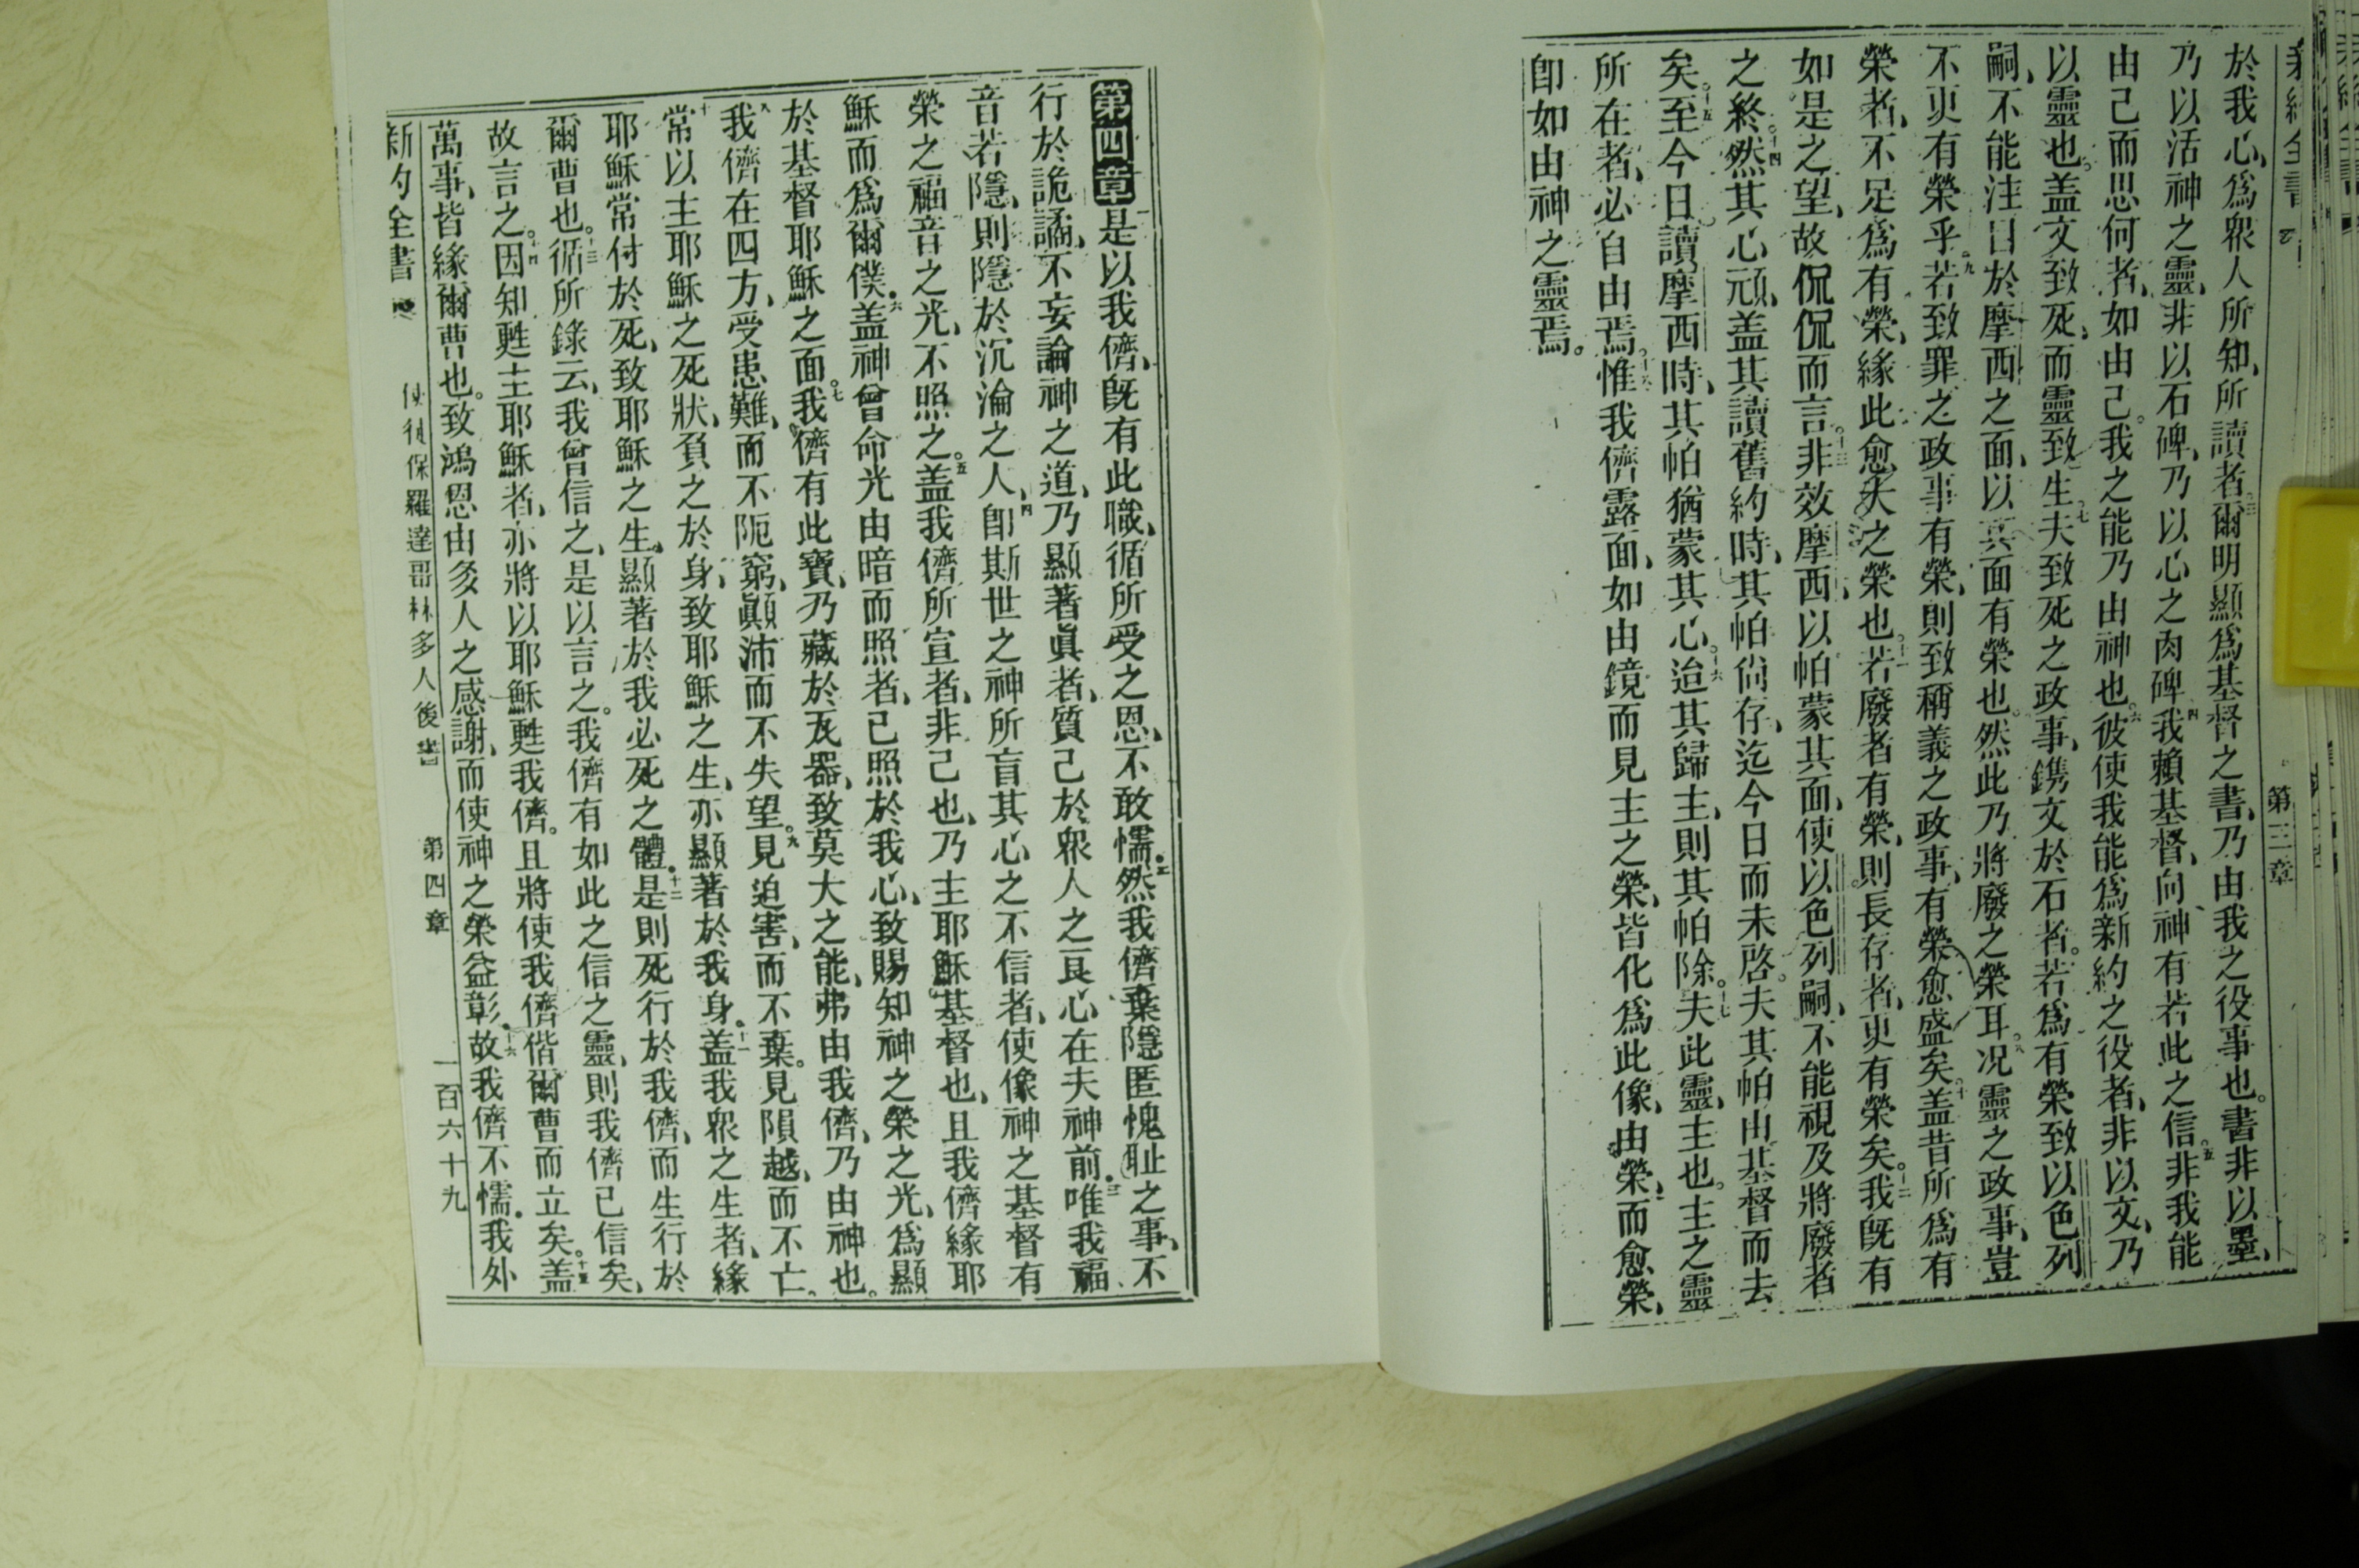 第三章
於我心、爲衆人所知、所讀者、三爾明顯爲基督之書、乃由我之役事也。書非以墨、
乃以活神之靈、非以石碑、乃以心之肉碑、四我賴基督、向神有若此之信。五非我能
由己而思何者、如由己。我之能乃由神也。六彼使我能爲新約之役者、非以文、乃
以靈也。盖文致死、而靈致生。七夫致死之政事、鐫文於石者。若爲有榮、致以色列
嗣、不能注目於摩西之面、以其面有榮也。然此乃將廢之榮耳。八况靈之政事、豈
不更有榮乎。九若致罪之政事有榮、則致稱義之政事、有榮愈盛矣。十盖昔所爲有
榮者、不足爲有榮、緣此愈大之榮也。十一若廢者有榮、則長存者、更有榮矣。十二我旣有
如是之望、故侃侃而言。十三非效摩西以帕蒙其面、使以色列嗣、不能視及將廢者
之終。十四然其心頑、盖其讀舊約時、其帕尙存、迄今日而未啓。夫其帕由基督而去
矣。十五至今日、讀摩西時、其帕猶蒙其心。十六迨其歸主、則其帕除。十七夫此靈、主也。主之靈
所在者、必自由焉。十八惟我儕露面、如由鏡而見主之榮、皆化爲此像、由榮而愈榮、
卽如由神之靈焉。
第四章是以我儕、旣有此職、循所受之恩、不敢懦。二然我儕棄隱匿愧耻之事、不
行於詭譎、不妄論神之道、乃顯著眞者、質己於衆人之良心在夫神前。三唯我福
音若隱、則隱於沉淪之人、四卽斯世之神所盲其心之不信者、使像神之基督有
榮之福音之光、不照之。五盖我儕所宣者、非己也、乃主耶穌基督也、且我儕緣耶
穌而爲爾僕。六盖神曾命光由暗而照者、已照於我心、致賜知神之榮之光、爲顯
於基督耶穌之面。七我儕有此寶、乃藏於瓦器、致莫大之能、弗由我儕、乃由神也。
八我儕在四方、受患難、而不阨窮、顚沛而不失望。九見迫害、而不棄。見隕越、而不亡。
十常以主耶穌之死狀、負之於身、致耶穌之生、亦顯著於我身。十一盖我衆之生者、緣
耶穌常付於死、致耶穌之生、顯著於我必死之體。十二是則死行於我儕、而生行於
爾曹也。十三循所錄云、我曾信之、是以言之。我儕有如此之信之靈、則我儕已信矣、
故言之。十四因知甦主耶穌者、亦將以耶穌甦我儕。且將使我儕偕爾曹而立矣。十五盖
萬事、皆緣爾曹也。致鴻恩由多人之感謝、而使神之榮益彰。十六故我儕不懦。我外
新約全書 使徒保羅達哥林多人後書 第四章 一百六十九